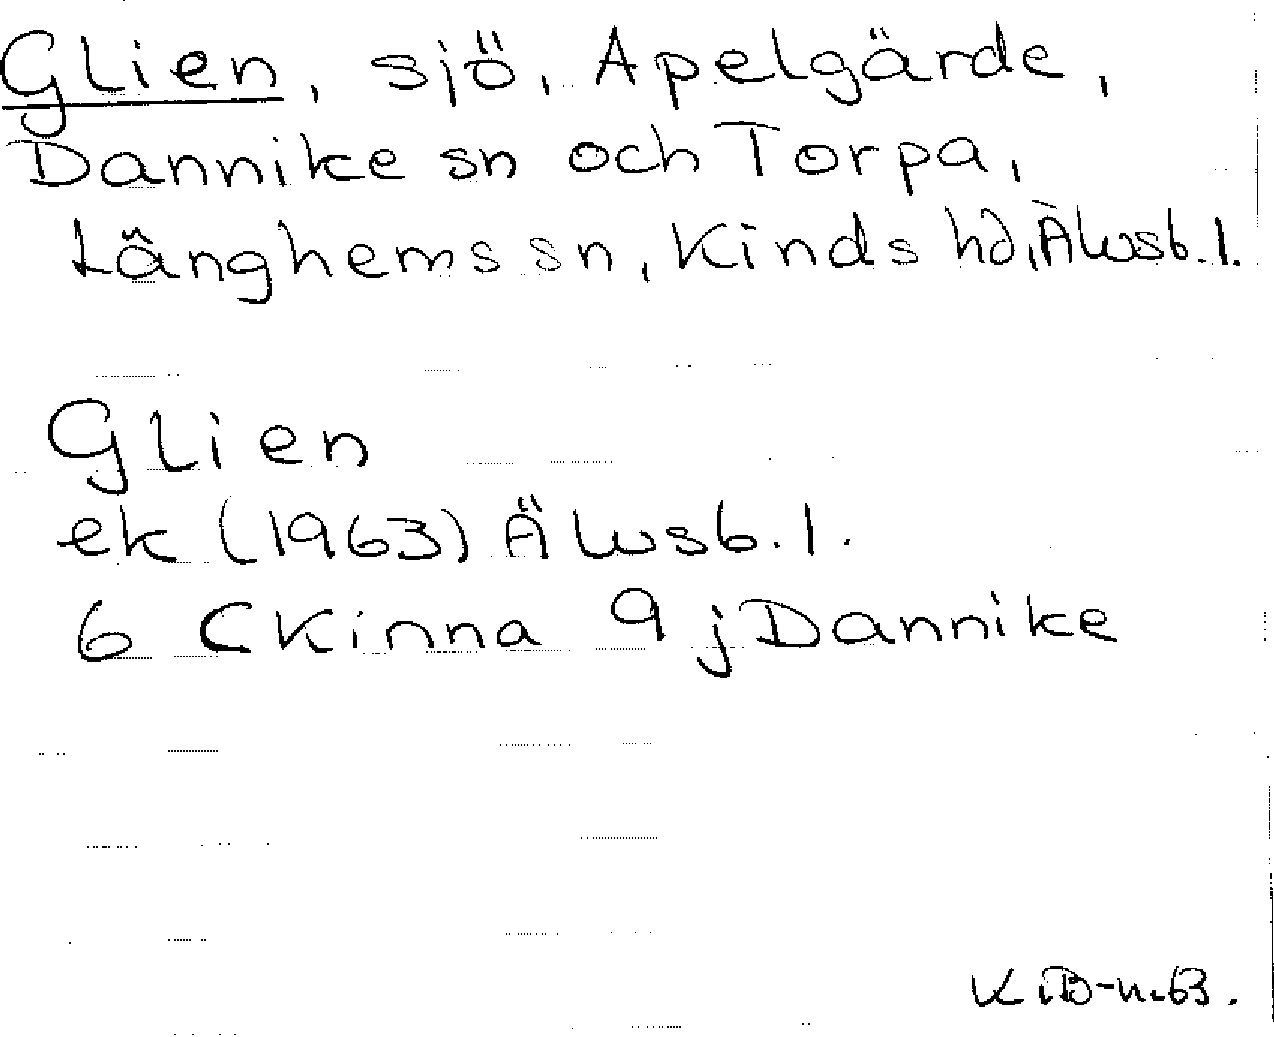 Glien, sjö, Apelgärde,
Dannike sn och Torpa,
Långhems sn, Kinds hd, Älvsb. l.
Glien
ek (1963) Älvsb. l.
6 C Kinna 9 j Dannike